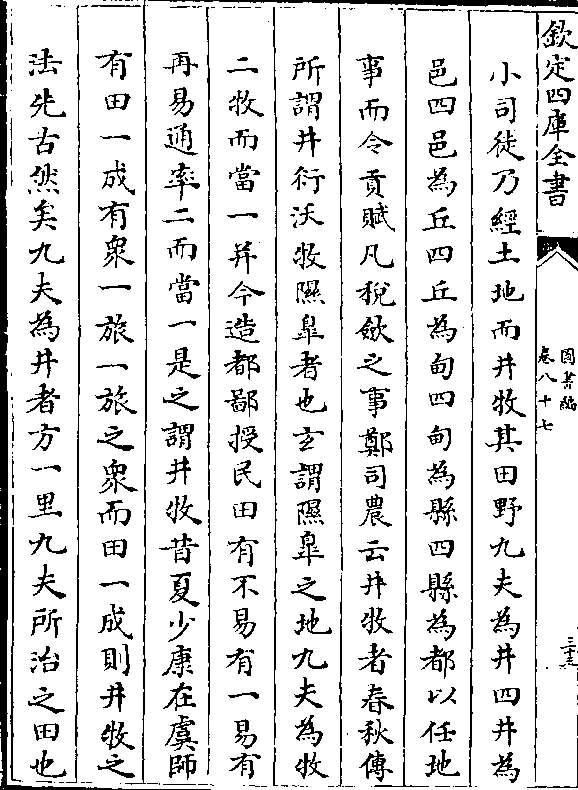 欽定四庫全書
圖書編
卷八十七
三十三
小司徒乃經土地而井牧其田野九夫為井四井為
邑四邑為丘四丘為甸四甸為縣四縣為都以任地
事而令貢賦凡稅斂之事鄭司農云井牧者春秋傳
所謂井衍沃牧隰臯者也玄謂隰臯之地九夫為牧
二牧而當一井今造都鄙授民田有不易有一易有
再易通率二而當一是之謂井牧昔夏少康在虞師
有田一成有衆一旅一旅之衆而田一成則井牧之
法先古然矣九夫為井者方一里九夫所治之田也